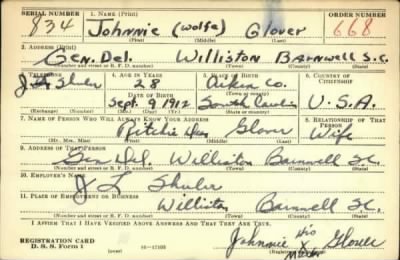 SERIAL NUMBER 1. NAME (Print) ORDER NUMBER
834 Johnnie (Wolfe) Glover 668
(First) (Middle) (Last)
2. ADDRESS (Print)
Gen. Del. Williston Barnwell S.C.
(Number and street or R. F. D. number) (Town) (County) (State)
3. TELEPHONE 4. AGE IN YEARS 5. PLACE OF BIRTH 6. COUNTRY OF CITIZENSHIP
28 Aiken Co.
DATE OF BIRTH (Town or county)
Sept. 9 1912 South Carolina U.S.A.
(Exchange) (Number) (Mo.) (Day) (Yr.) (State or country)
7. NAME OF PERSON WHO WILL ALWAYS KNOW YOUR ADDRESS 8. RELATIONSHIP OF THAT PERSON
Ritchie Glover Wife
(Mr., Mrs., Miss) (First) (Middle) (Last)
9. ADDRESS OF THAT PERSON
Gen Del. Williston Barnwell SC.
(Number and street or R. F. D. number) (Town) (County) (State)
10. EMPLOYER'S NAME
J L Shuler
11. PLACE OF EMPLOYMENT OR BUSINESS
Williston Barnwell SC.
(Number and street or R. F. D. number) (Town) (County) (State)
I AFFIRM THAT I HAVE VERIFIED ABOVE ANSWERS AND THAT THEY ARE TRUE.
REGISTRATION CARD
D. S. S. Form 1
Johnnie his X Mark Glover